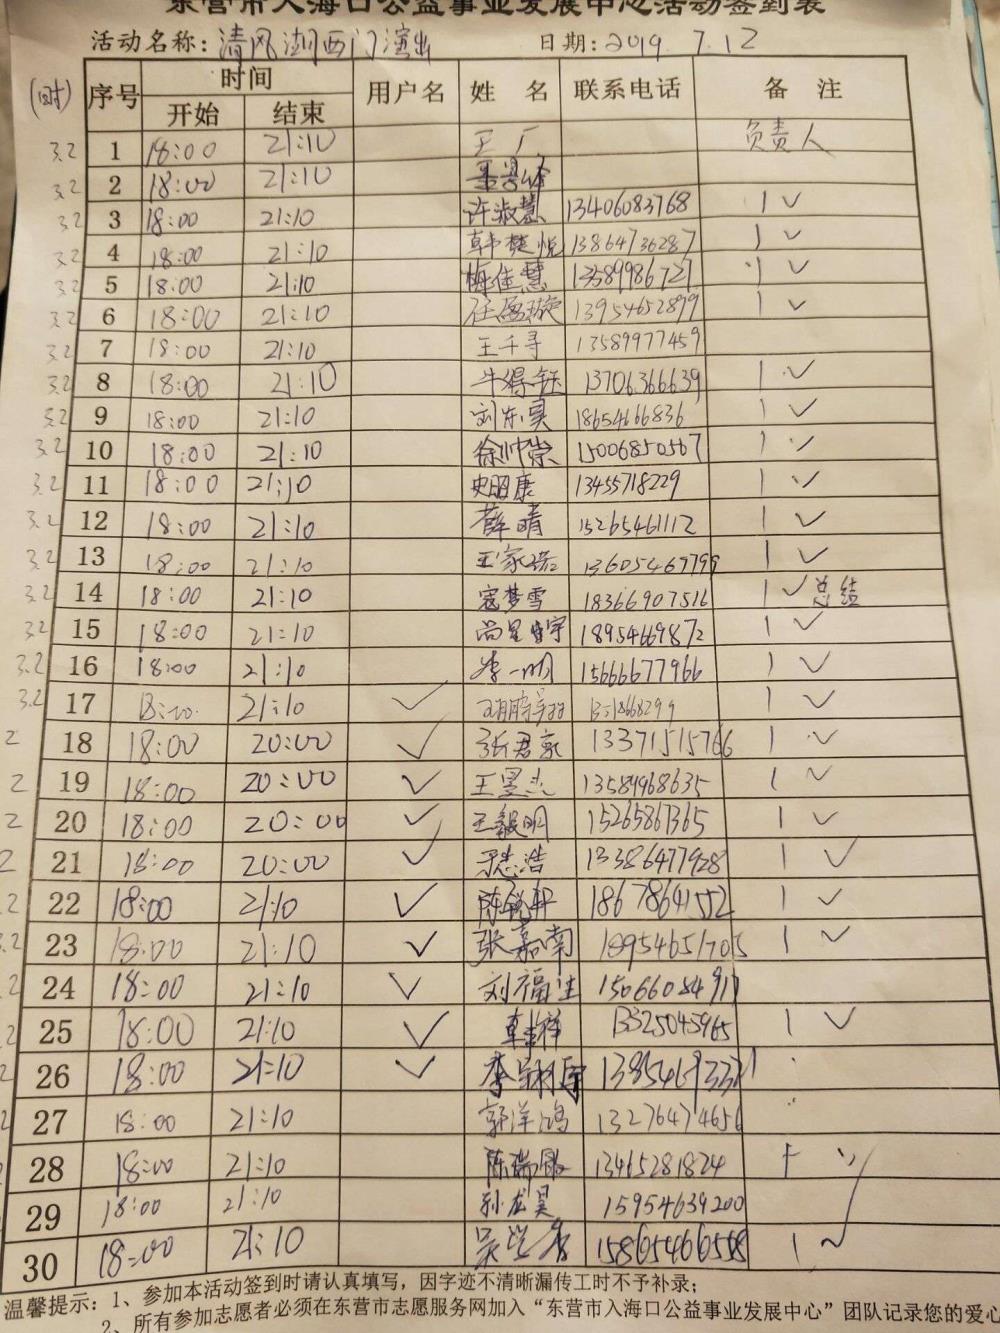 东营市入海口公益事业发展中心活动签到表
活动名称：清风湖西门演出 日期：2019.7.12
(时) 序号 时间 用户名 姓 名 联系电话 备 注
开始 结束
3.2 1 18:00 21:10 王厂 负责人
3.2 2 18:00 21:10
3.2 3 18:00 21:10 许淑慧 13406083768 1 ✓
3.2 4 18:00 21:10 韩楚悦 13864736287 1 ✓
3.2 5 18:00 21:10 梅佳慧 13589986721 1 ✓
3.2 6 18:00 21:10 任盈璇 13954652899 1 ✓
3.2 7 18:00 21:10 王千寻 13589977459
3.2 8 18:00 21:10 牛得钰 13706366639 1 ✓
3.2 9 18:00 21:10 刘东昊 18654666836 1 ✓
3.2 10 18:00 21:10 徐帅崇 15006850567 1 ✓
3.2 11 18:00 21:10 史昭康 13455718229 1 ✓
3.2 12 18:00 21:10 薛晴 15265461112 1 ✓
3.2 13 18:00 21:10 王家诺 13605469799 1 ✓
3.2 14 18:00 21:10 寇梦雪 18366907516 1 ✓ 总结
3.2 15 18:00 21:10 18954669872 1 ✓
3.2 16 18:00 21:10 李一明 15666677966 1 ✓
3.2 17 18:00 21:10 ✓ 1 ✓
2 18 18:00 20:00 ✓ 张君豪 13371515766 1 ✓
2 19 18:00 20:00 ✓ 王昱杰 13589968635 1 ✓
2 20 18:00 20:00 ✓ 王毅明 15265861365 1 ✓
2 21 18:00 20:00 ✓ 13386477928 1 ✓
.2 22 18:00 21:10 ✓ 陈锐轩 18678641552 1 ✓
3.2 23 18:00 21:10 ✓ 张嘉南 18954651705 1 ✓
.2 24 18:00 21:10 ✓ 刘福生 15066084911
.2 25 18:00 21:10 ✓ 13325045965 1 ✓
2 26 18:00 21:10 ✓
2 27 18:00 21:10 郭洋鸿 13276474656
28 18:00 21:10 13465281824 1 ✓
29 18:00 21:10 孙龙昊 15954639200
30 18:00 21:10 15865466558 1 ✓
温馨提示：1、参加本活动签到时请认真填写，因字迹不清晰漏传工时不予补录；
2、所有参加志愿者必须在东营市志愿服务网加入“东营市入海口公益事业发展中心”团队记录您的爱心